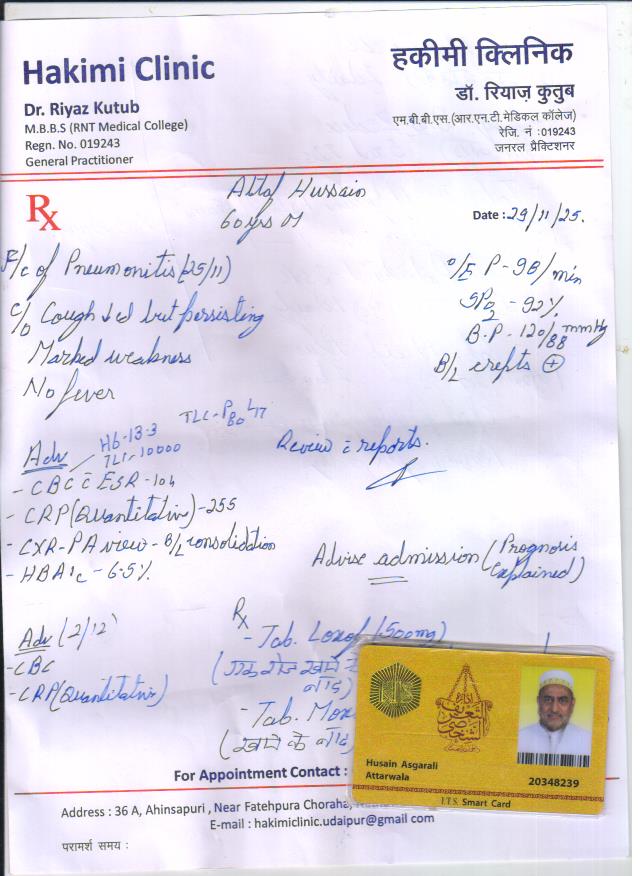 Hakimi Clinic
Dr. Riyaz Kutub
M.B.B.S (RNT Medical College)
Regn. No. 019243
General Practitioner
हकीमी क्लिनिक
डॉ. रियाज़ कुतुब
एम.बी.बी.एस.(आर.एन.टी.मेडिकल कॉलेज)
रेजि. नं :019243
जनरल प्रैक्टिशनर
Rx
Altaf Hussain
60yrs M
Date : 29/11/25.
F/c of Pneumonitis (25/11)
c/o Cough ↓ed but persisting
Marked weakness
No fever
O/E P - 98/min
SPO2 - 92%
B.P - 120/88 mmHg
B/L crepts +
Adv
Hb-13.3
TLC-10000
TLC-P80
Review c̄ reports.
- CBC c̄ ESR - 104
- CRP (Quantitative) - 255
- CXR-PA view - B/L consolidation
- HBA1c - 6.5%
Advise admission (Prognosis explained)
Adv (2/12)
- CBC
- CRP (Quantitative)
Rx
- Tab. Loxof (500mg)
(एक रोज खाने के
बाद)
- Tab.
(खाने के बाद
Husain Asgarali
Attarwala
20348239
I.T.S. Smart Card
For Appointment Contact :
Address : 36 A, Ahinsapuri , Near Fatehpura Choraha,
E-mail : hakimiclinic.udaipur@gmail.com
परामर्श समय :